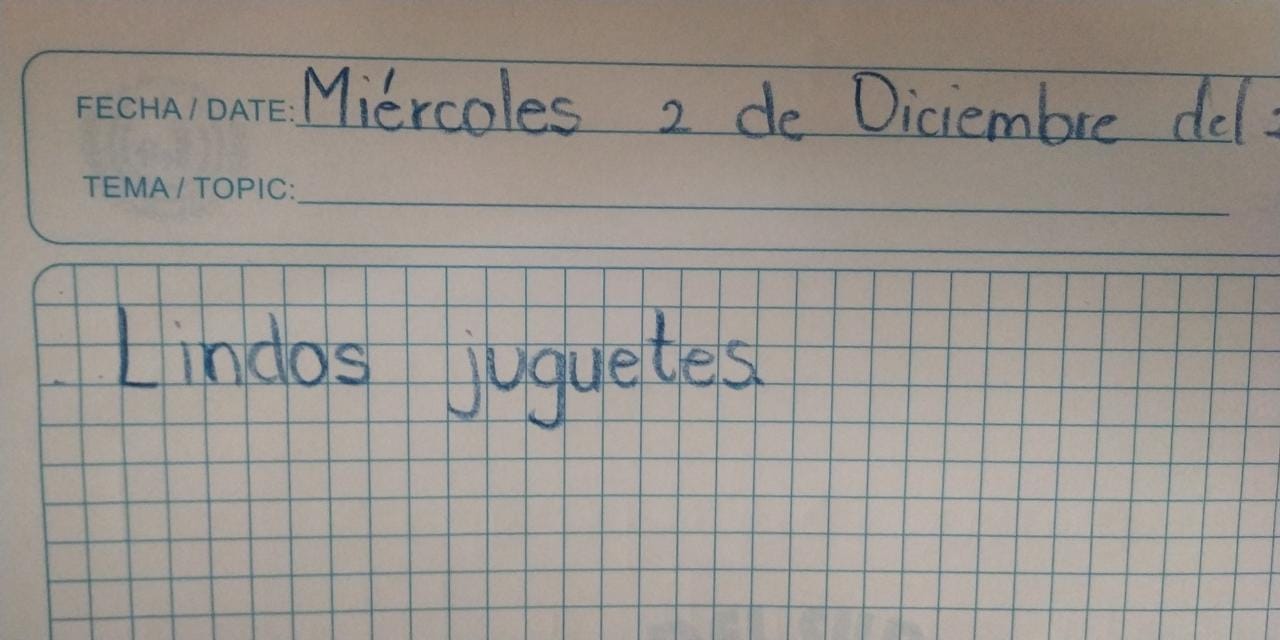 FECHA / DATE: Miércoles 2 de Diciembre del
TEMA / TOPIC:
Lindos juguetes